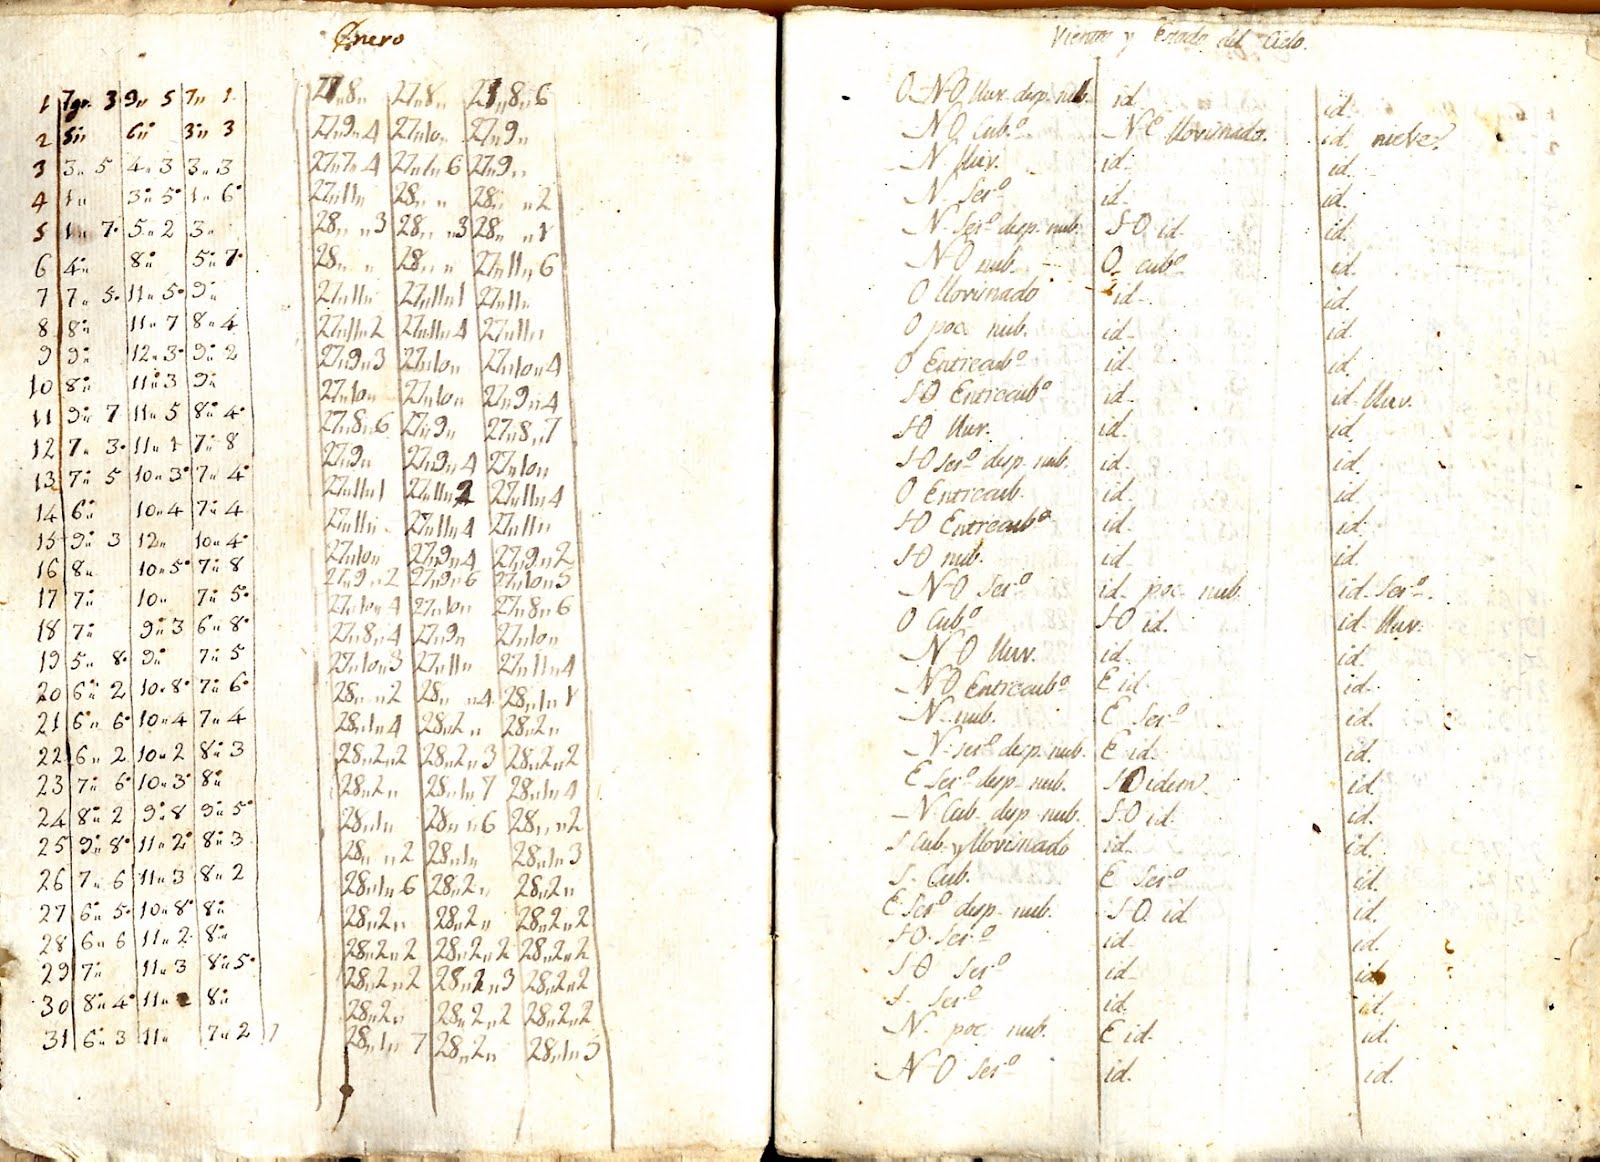 Enero
1 7gr. 3 9,, 5 7,, 1
27,,8,, 27,,8,, 27,,8,,6
2 5,, 6,, 3,, 3
27,,9,,4 27,,10,, 27,,9,,
3 3,, 5 4,, 3 3,, 3
27,,7,,4 27,,1,,6 27,,9,,
4 1,, 3,, 5 1,, 6
27,,11,, 28,, ,, 28,, ,,2
5 1,, 7 5,, 2 3,,
28,, ,,3 28,, ,,3 28,, ,,1
6 4,, 8,, 5,, 7
28,, ,, 28,, ,, 27,,11,,6
7 7,, 5 11,, 5 9,,
27,,11,, 27,,11,,1 27,,11,,
8 8,, 11,, 7 8,, 4
27,,11,,2 27,,11,,4 27,,11,,
9 9,, 12,, 3 9,, 2
27,,9,,3 27,,10,, 27,,10,,4
10 8,, 11,, 3 9,,
27,,10,, 27,,10,, 27,,9,,4
11 9,, 7 11,, 5 8,, 4
27,,8,,6 27,,9,, 27,,8,,7
12 7,, 3 11,, 1 7,, 8
27,,9,, 27,,9,,4 27,,10,,
13 7,, 5 10,, 3 7,, 4
27,,11,,1 27,,11,,2 27,,11,,4
14 6,, 10,, 4 7,, 4
27,,11,, 27,,11,,4 27,,11,,
15 9,, 3 12,, 10,, 4
27,,10,, 27,,9,,4 27,,9,,2
16 8,, 10,, 5 7,, 8
27,,9,,2 27,,9,,6 27,,10,,5
17 7,, 10,, 7,, 5
27,,10,,4 27,,10,, 27,,8,,6
18 7,, 9,, 3 6,, 8
27,,8,,4 27,,9,, 27,,10,,
19 5,, 8 9,, 7,, 5
27,,10,,3 27,,11,, 27,,11,,4
20 6,, 2 10,, 8 7,, 6
28,, ,,2 28,, ,,4 28,,1,,1
21 6,, 6 10,, 4 7,, 4
28,,1,,4 28,,2,, 28,,2,,
22 6,, 2 10,, 2 8,, 3
28,,2,,2 28,,2,,3 28,,2,,2
23 7,, 6 10,, 3 8,,
28,,2,, 28,,1,,7 28,,1,,4
24 8,, 2 9,, 8 9,, 5
28,,1,, 28,, ,,6 28,, ,,2
25 9,, 8 11,, 2 8,, 3
28,, ,,2 28,,1,, 28,,1,,3
26 7,, 6 11,, 3 8,, 2
28,,1,,6 28,,2,, 28,,2,,
27 6,, 5 10,, 8 8,,
28,,2,, 28,,2,, 28,,2,,2
28 6,, 6 11,, 2 8,,
28,,2,,2 28,,2,,2 28,,2,,2
29 7,, 11,, 3 8,, 5
28,,2,,2 28,,2,,3 28,,2,,2
30 8,, 4 11,, 8,,
28,,2,, 28,,2,,2 28,,2,,2
31 6,, 3 11,, 7,, 2
28,,1,,7 28,,2,, 28,,1,,5
Vientos y Estado del Cielo.
O NO lluv. desp. nub. id. id.
NO Cubº NE llovisnado. id. nieve.
N lluv. id. id.
N Serº id. id.
N Serº desp. nub. SO id. id.
NO nub. O cubº id.
O llovisnado id. id.
O poc nub. id. id.
O Entrecubº id. id.
SO Entrecubº id. id. lluv.
SO lluv. id. id.
SO serº desp. nub. id. id.
O Entrecub. id. id.
SO Entrecubº id. id.
SO nub. id. id.
NO Serº id. poc nub. id. Serº
O Cubº SO id. id. lluv.
NO lluv. id. id.
NO Entrecubº E id. id.
N nub. E Serº id.
N serº desp. nub. E id. id.
E Serº desp. nub. SO idem. id.
N Cub. desp nub. SO id. id.
S Cub y llovisnado id. id.
S. Cub. E Serº id.
E Serº desp. nub. SO id. id.
SO Serº id. id.
SO Serº id. id.
S. Serº id. id.
N. poc nub. E id. id.
NO Serº id. id.